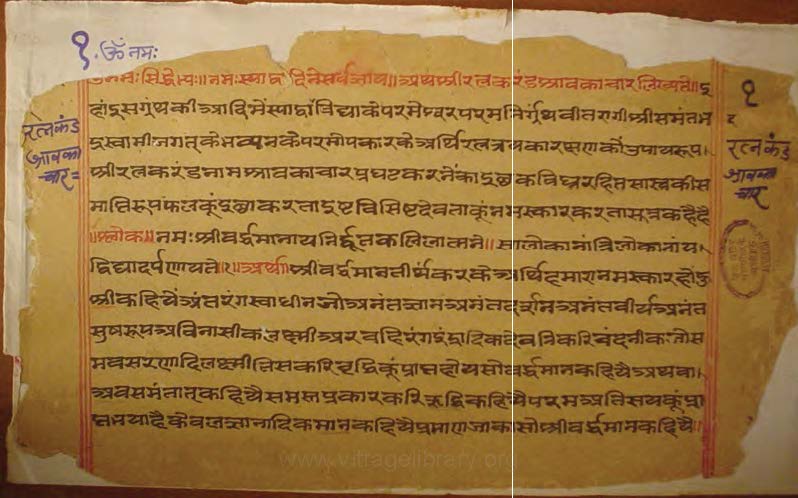 १. ॐ नमः
ॐ नमः सिद्धेभ्यः॥ नमः स्याद्वादिने सर्वज्ञाय॥ अथ श्री रत्नकरंड श्रावकाचार लिख्यते॥ इ
हां इस ग्रंथ की आदि में स्याद्वाद विद्या के परमेश्वर परम निर्ग्रंथ वीतरागी श्री समंतभ
द्र स्वामी जगत् के भव्यन के परमोपकार के अर्थि रत्नत्रय का रक्षण को उपाय रूप।
श्री रत्नकरंड नाम श्रावकाचार प्रघट करने का इछक विघ्न रहित सास्त्र की स
माप्ति रूप फल कूं इछा करता इष्ट विसिष्ट देवता कूं नमस्कार करता सूत्र कहै है
॥श्लोक॥ नमः श्री वर्द्धमानाय निर्द्धूत कलिलात्मने॥ सालोकानां त्रिलोकानां य
द्विद्या दर्पणायते॥१॥ अर्थ॥ श्री वर्द्धमान तीर्थंकर के अर्थि हमारा नमस्कार होहु
श्री कहियें अंतरंग स्वाधीन जो अनंत ज्ञान अनंत दर्शन अनंत वीर्य अनंत
सुषरूप अविनासीक लक्ष्मी अर बहिरंग इंद्रादिक देवनि करि वंदनीक जो स
मवसरणादि लक्ष्मी तिस करि वृद्धि कूं प्राप्त होय सो वर्द्धमान कहियै अथवा।
अव समंतात् कहियै समस्त प्रकार करि ऋद्धि कहियै परम अतिसय कूं प्रा
प्त भया है केवल ज्ञानादिक मान कहियै प्रमाण जाका सो श्री वर्द्धमान कहियै॥
रत्नकंड
श्रावका
चार =
१
रत्नकंड
श्रावका
चार
www.vitragelibrary.org